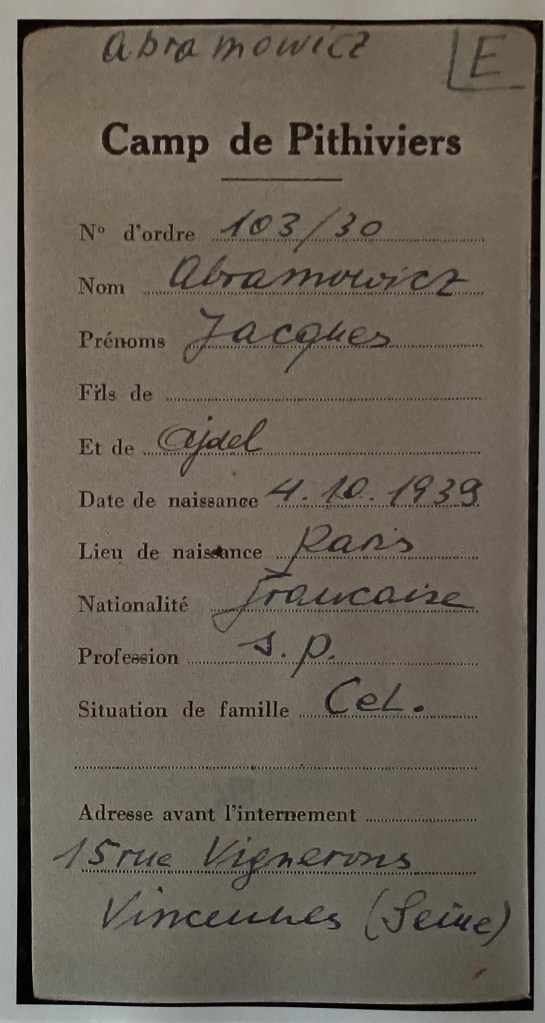 Abramowicz
E
Camp de Pithiviers
Nº d'ordre 103/30
Nom Abramowicz
Prénoms Jacques
Fils de
Et de Ajdel
Date de naissance 4.10.1939
Lieu de naissance Paris
Nationalité Francaise
Profession s.p.
Situation de famille Cel.
Adresse avant l'internement
15 rue Vignerons
Vincennes (Seine)